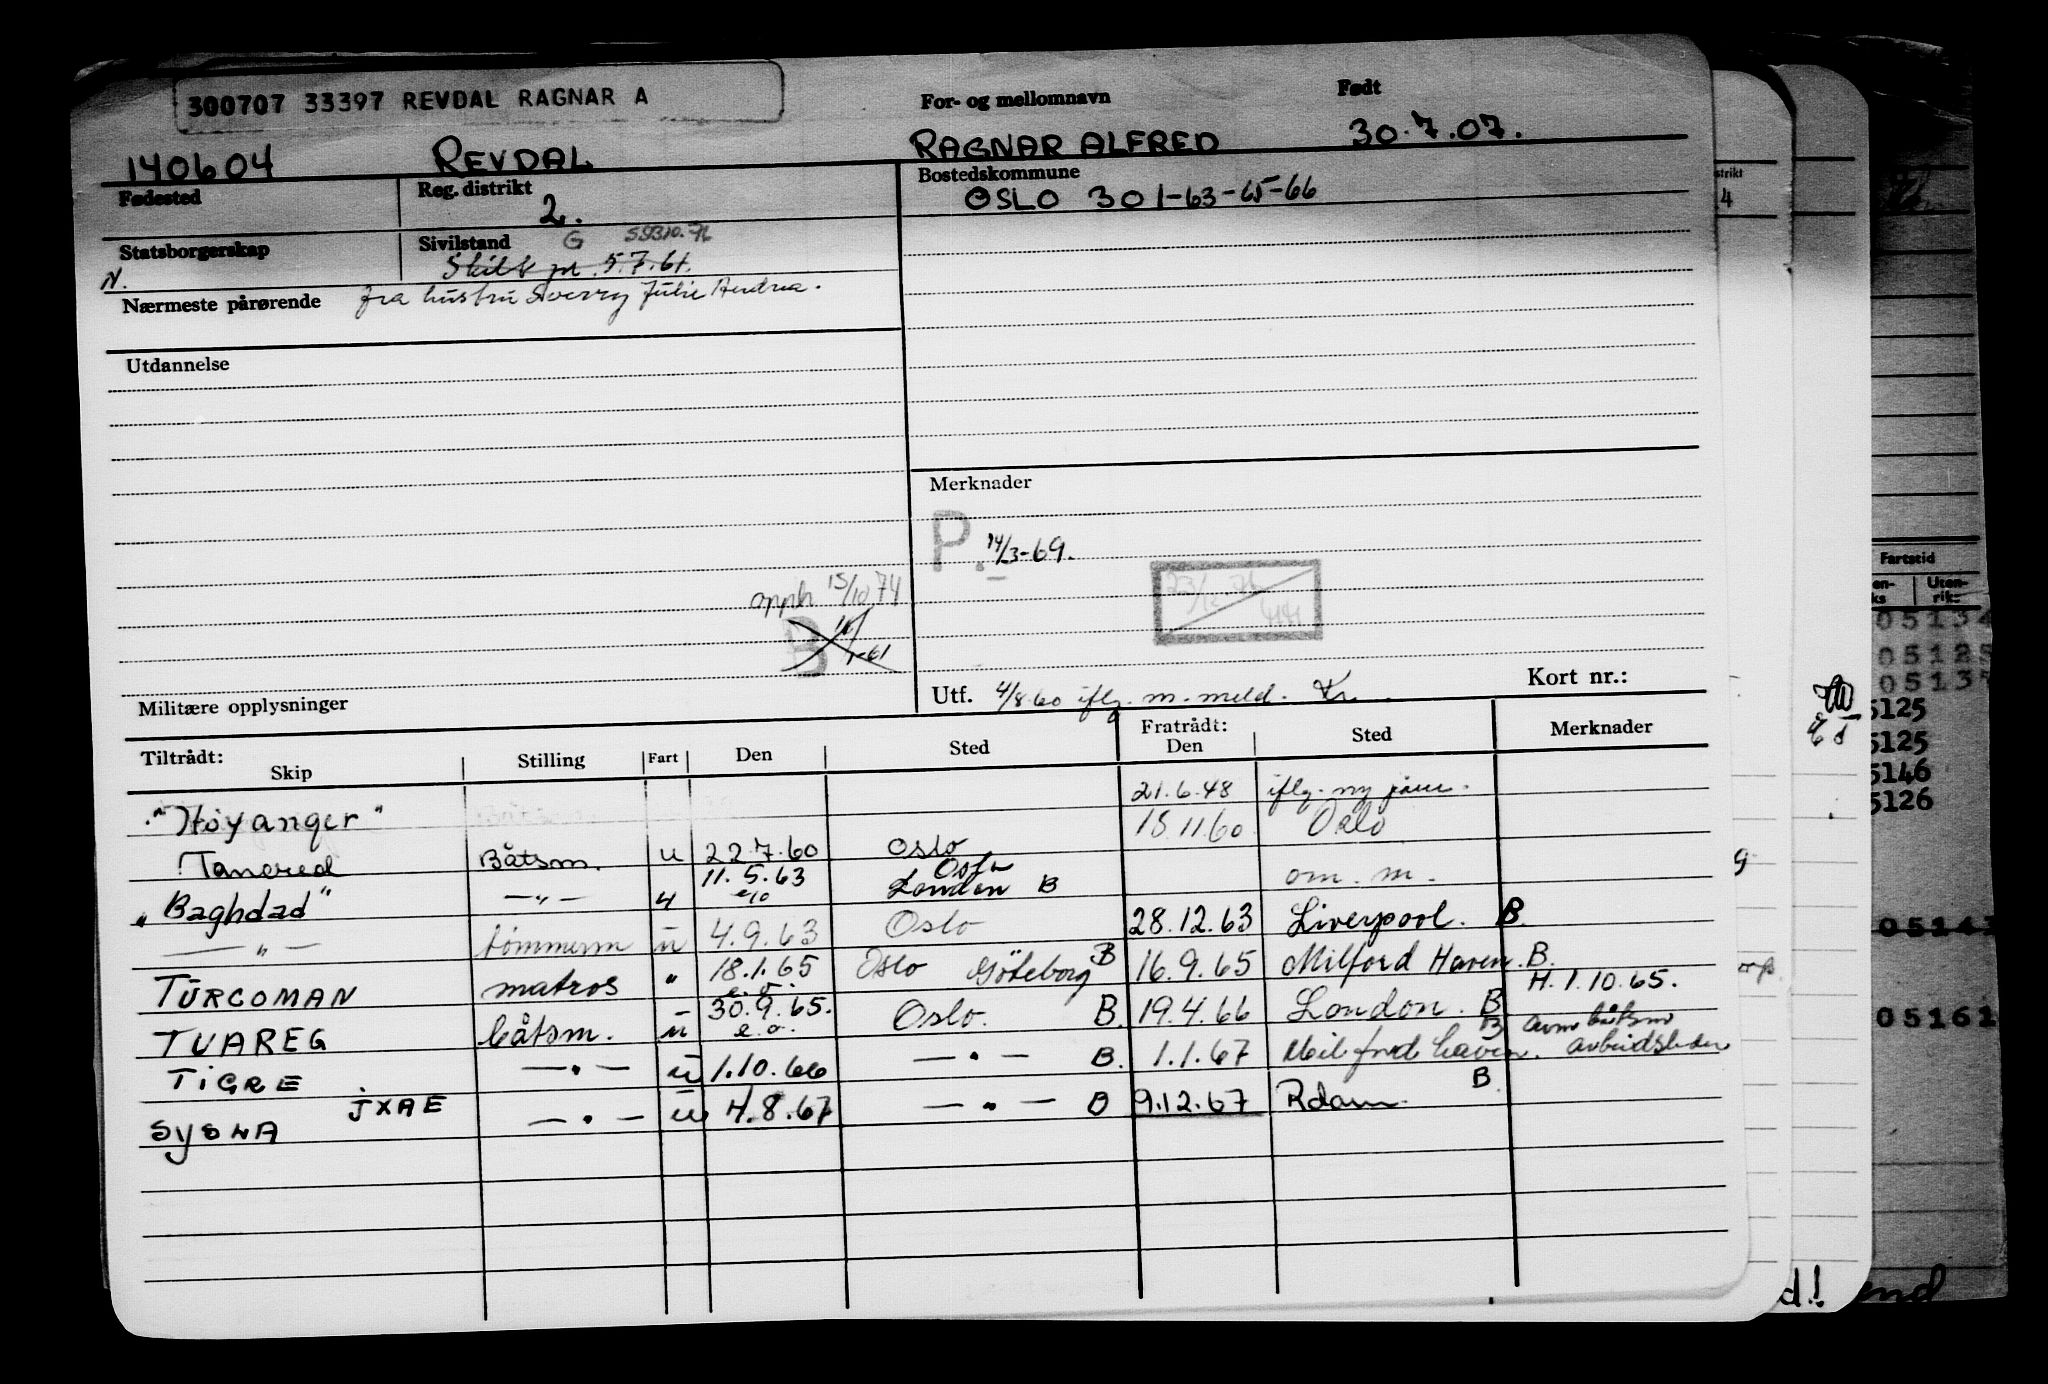 300707 33397 REVDAL RAGNAR A
For- og mellomnavn
Født
140604 REVDAL RAGNAR ALFRED 30.7.07.
Fødested
Reg. distrikt
2.
Bostedskommune
OSLO 301-63-65-66
Statsborgerskap
N.
Sivilstand G
Skilt pr. 5.7.61.
Nærmeste pårørende fra hustru Sverry Julie Andrea.
Utdannelse
Merknader
P. 14/3-69.
opph 15/10 74
B
Militære opplysninger
Utf. 4/8.60 iflg. m. meld. Kr.
Kort nr.:
Tiltrådt: Skip Stilling Fart Den Sted Fratrådt: Den Sted Merknader
"Høyanger" 21.6.48 iflg. ny jour.
Tancred Båtsm. u 22.7.60 Oslo 15.11.60 Oslo
"Baghdad" —"— u 11.5.63 Oslo London B om. m.
—"— tømmerm u 4.9.63 Oslo 28.12.63 Liverpool. B.
TÜRCOMAN matros " 18.1.65 Oslo Göteborg B 16.9.65 Milford Haven. B.
H. 1.10.65.
TUAREG båtsm. u 30.9.65. e.o. Oslo. B. 19.4.66 London. B
TIGRE —"— u 1.10.66 —"— B. 1.1.67 Milford haven. B arbeidsleder
SYSLA JXAE —"— u 4.8.67 —"— B 9.12.67 Rdam. B
strikt
4
Fartstid
Uten-
riks
05134
05125
05137
5125
5125
5146
5126
05143
05161
d!
end